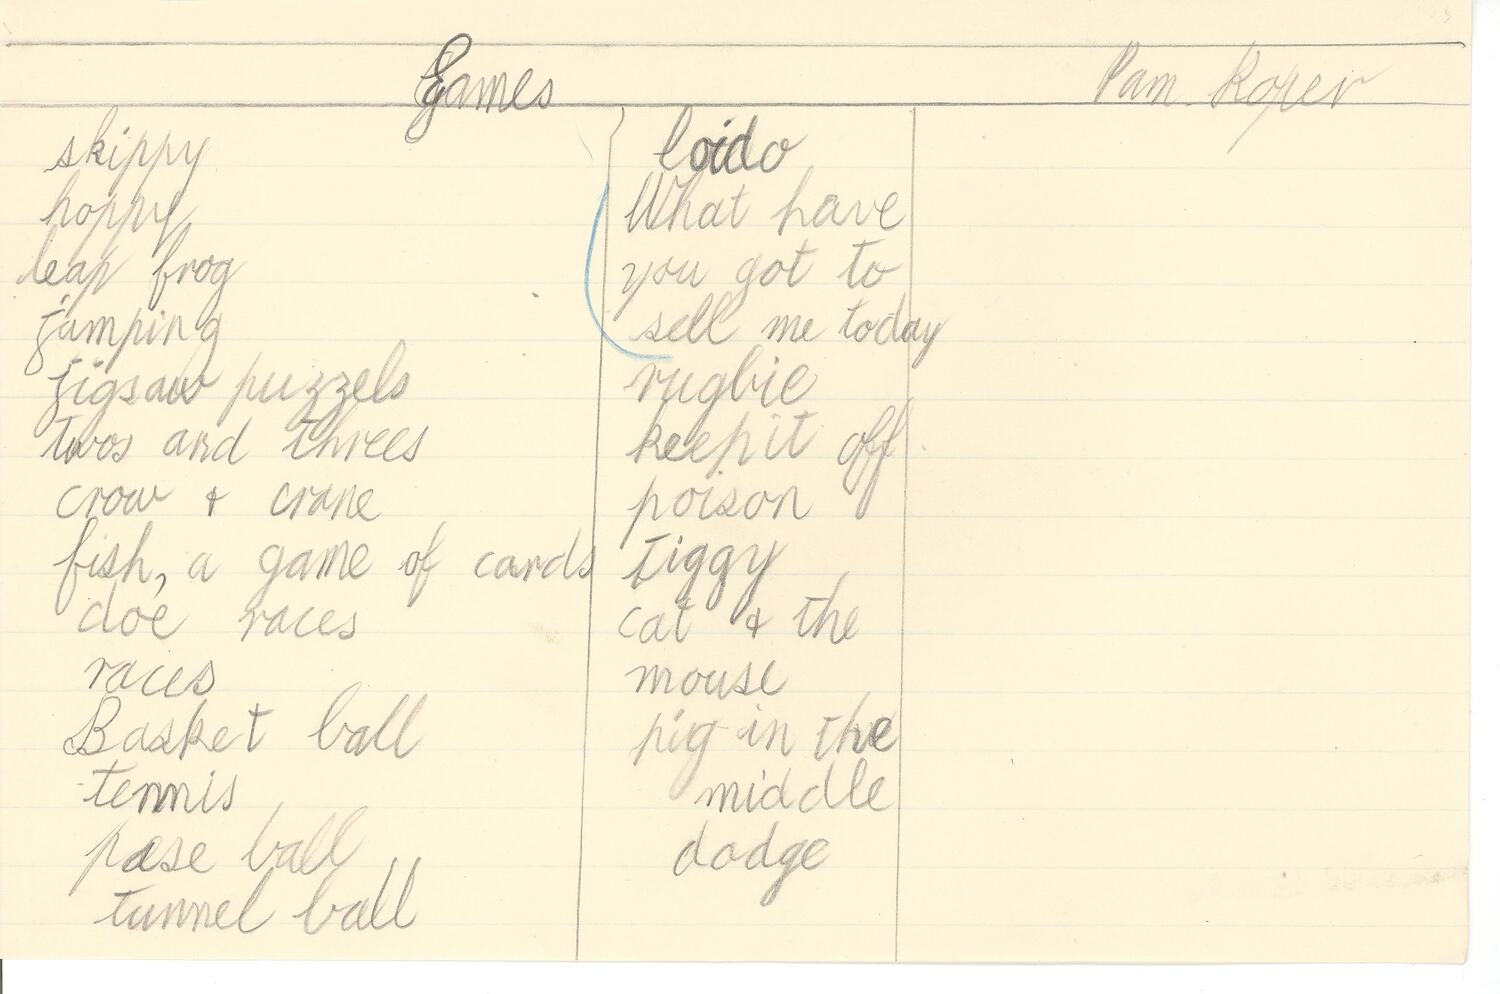 Games
Pam.
skippy
hoppy
leap frog
jamping
jigsaw puzzels
twos and threes
crow + crane
fish, a game of cards
doe races
races
Basket ball
tennis
pase ball
tunnel ball
loido
What have
you got to
sell me today
rugbie
keepit off
poison
tiggy
cat + the
mouse
pig in the
middle
dodge